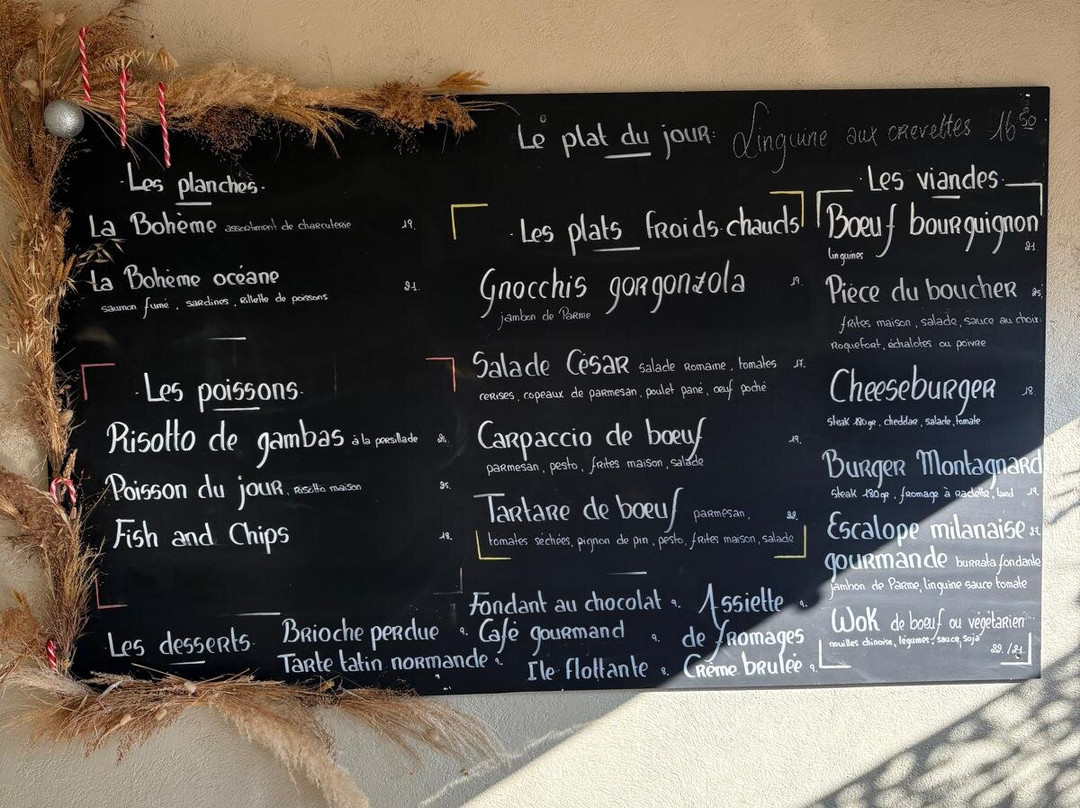 Le plat du jour: Linguine aux crevettes 16 50
Les planches
La Bohème assortiment de charcuterie 19.
La Bohème océane 21.
saumon fumé, sardines, rillette de poissons
Les poissons
Risotto de gambas à la persillade
Poisson du jour, Risotto maison 25.
Fish and Chips 18.
Les plats froids-chauds
Gnocchis gorgonzola 19.
jambon de Parme
Salade César salade Romaine, tomates 17.
cerises, copeaux de parmesan, poulet pané, oeuf poché
Carpaccio de boeuf 19.
parmesan, pesto, frites maison, salade
Tartare de boeuf parmesan, 22.
tomates séchées, pignon de pin, pesto, frites maison, salade
Les viandes
Boeuf bourguignon
linguines 21.
Pièce du boucher 25.
frites maison, salade, sauce au choix
Roquefort, échalotes ou poivre
Cheeseburger 18.
steak 180gr, cheddar, salade, tomate
Burger Montagnard
steak 180gr, fromage à raclette, lard 19.
Escalope milanaise
gourmande burrata fondante
jambon de Parme, linguine sauce tomate
Wok de boeuf ou végétarien
nouilles chinoise, légumes, sauce soja
22./21.
Les desserts
Brioche perdue 9.
Tarte tatin normande 9.
Fondant au chocolat 9.
Café gourmand 9.
Ile flottante 8.
Assiette 9.
de fromages
Crème brulée 9.